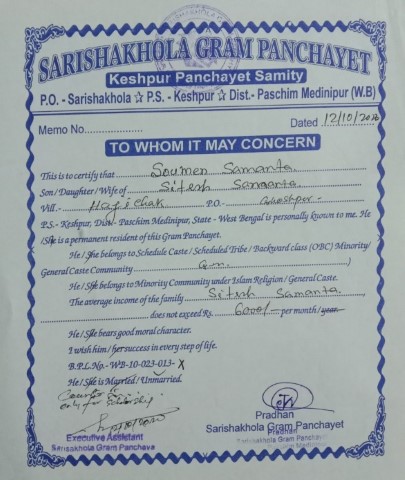 SARISHAKHOLA GRAM PANCHAYET
Keshpur Panchayet Samity
P.O. - Sarishakhola ☆ P.S. - Keshpur ☆ Dist.- Paschim Medinipur (W.B)
Memo No.................... Dated 12/10/2020
TO WHOM IT MAY CONCERN
This is to certify that Soumen Samanta
Son/Daughter/Wife of Sitesh Samanta
Vill.- Hajichak P.O.-
P.S.- Keshpur, Dist.- Paschim Medinipur, State - West Bengal is personally known to me. He
/She is a permanent resident of this Gram Panchayet.
He / She belongs to Schedule Caste / Scheduled Tribe / Backward class (OBC) Minority/
General Caste Community
He / She belongs to Minority Community under Islam Religion / General Caste.
The average income of the family Sitesh Samanta
does not exceed Rs. 6000/- per month / year
He / She bears good moral character.
I wish him / her success in every step of life.
B.P.L.No.- WB-10-023-013- X
He / She is Married / Unmarried.
only for Scholarship
Executive Assistant
Sarishakhola Gram Panchaya
Pradhan
Sarishakhola Gram Panchayet
Pradhan
Sarishakhola Gram Panchayet